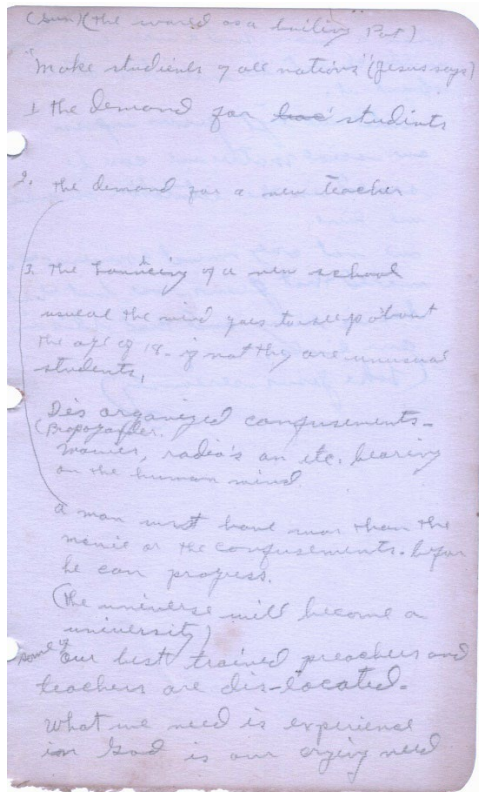 (Sun) (the world as a boiling Pot)
"Make students of all nations" (Jesus says)
1. the demand for students
2. the demand for a new teacher
3. the Launcing of a new school
usual the mind goes to sleep about
the age of 18. if not they are unusual
students,
Dis organized confusements-
(Propogander.
Movies, radio's an etc. bearing
on the human mind
a man must have mor than the
movie or the confusements. befor
he can progress.
(the universe will become a
university)
some of our best trained preachers and
teachers are dis-located.
What we need is experience
in God is our crying need